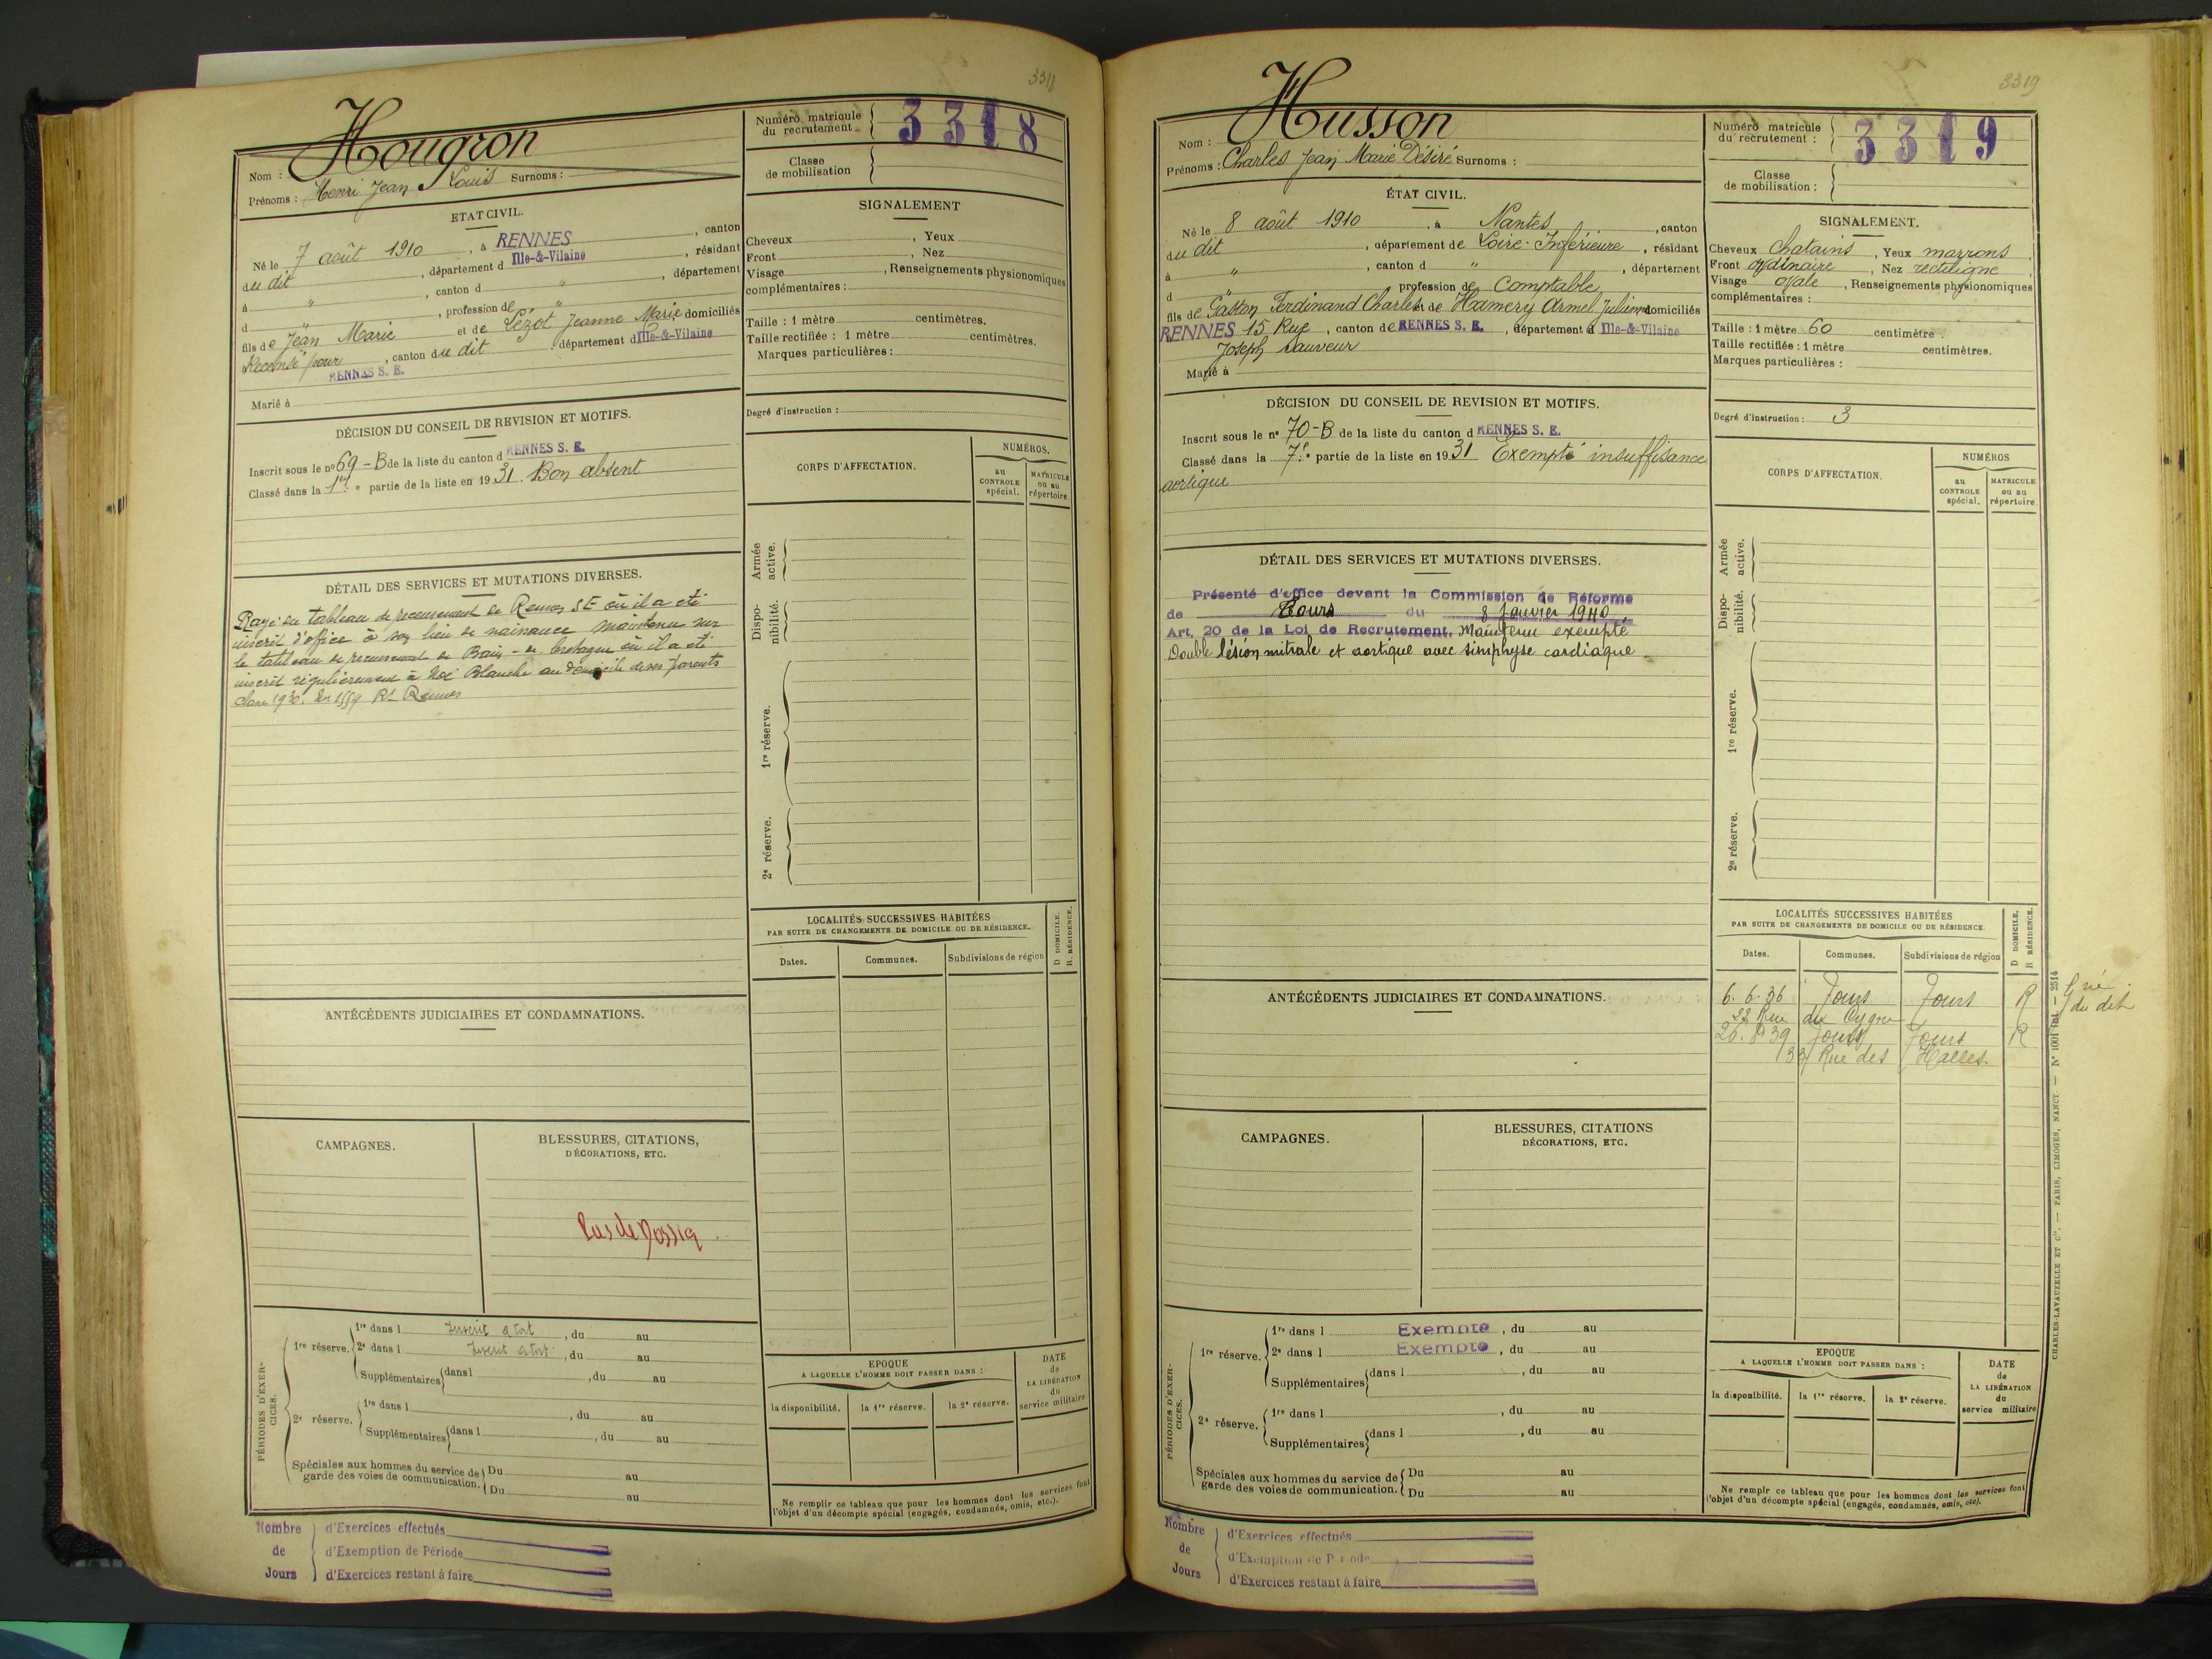 3318
Hougron
Nom :
Prénoms : Henri Jean Louis Surnoms :
ETAT CIVIL.
Né le 7 août 1910, à RENNES, canton
du dit, département d Ille-&-Vilaine, résidant
à ", canton d ", département
d ", profession de "
fils de Jean Marie et de Lézot Jeanne Marie domiciliés
Recensé pour, canton du dit, département d Ille-&-Vilaine
RENNES S. E.
Marié à
DÉCISION DU CONSEIL DE REVISION ET MOTIFS.
Inscrit sous le nº 69 - B de la liste du canton d RENNES S. E.
Classé dans la 1re partie de la liste en 1931. Bon absent
DÉTAIL DES SERVICES ET MUTATIONS DIVERSES.
Rayé du tableau de recensement de Rennes SE où il a été
inscrit d'office à son lieu de naissance maintenu sur
le tableau de recensement de Bain - de bretagne où il a été
inscrit régulièrement à Noë Blanche au domicile de ses parents
classe 1930. Rt Rennes
ANTÉCÉDENTS JUDICIAIRES ET CONDAMNATIONS.
CAMPAGNES.
BLESSURES, CITATIONS,
DÉCORATIONS, ETC.
Pas de Dossier
PÉRIODES D'EXER-
CICES.
1re réserve.
1re dans l Inscrit à tort, du au
2e dans l Inscrit à tort, du au
Supplémentaires dans l , du au
2e réserve.
1re dans l , du au
Supplémentaires dans l , du au
Spéciales aux hommes du service de
garde des voies de communication.
Du au
Du au
Nombre
de
Jours
d'Exercices effectués
d'Exemption de Période
d'Exercices restant à faire
Numéro matricule
du recrutement
3318
Classe
de mobilisation
SIGNALEMENT
Cheveux , Yeux
Front , Nez
Visage , Renseignements physionomiques
complémentaires :
Taille : 1 mètre centimètres.
Taille rectifiée : 1 mètre centimètres.
Marques particulières :
Degré d'instruction :
CORPS D'AFFECTATION.
NUMÉROS.
au
CONTROLE
spécial.
MATRICULE
ou au
répertoire.
Armée
active.
Dispo-
nibilité.
1re réserve.
2e réserve.
LOCALITÉS SUCCESSIVES HABITÉES
PAR SUITE DE CHANGEMENTS DE DOMICILE OU DE RÉSIDENCE.
D DOMICILE.
R RÉSIDENCE.
Dates.
Communes.
Subdivisions de région
EPOQUE
A LAQUELLE L'HOMME DOIT PASSER DANS :
la disponibilité.
la 1re réserve.
la 2e réserve.
DATE
de
LA LIBÉRATION
du
service militaire
Ne remplir ce tableau que pour les hommes dont les services font
l'objet d'un décompte spécial (engagés, condamnés, omis, etc.).
3319
Husson
Nom :
Prénoms : Charles Jean Marie Désiré Surnoms :
ÉTAT CIVIL.
Né le 8 août 1910, à Nantes, canton
du dit, département de Loire-Inférieure, résidant
à ", canton d ", département
d profession de Comptable
fils de Gaston Ferdinand Charles et de Hamery Armel Julienne domiciliés
RENNES 15 Rue, canton de RENNES S. E., département d Ille-&-Vilaine
Joseph Sauveur
Marié à
DÉCISION DU CONSEIL DE REVISION ET MOTIFS.
Inscrit sous le nº 70-B de la liste du canton d RENNES S. E.
Classé dans la 7e partie de la liste en 1931 Exempté insuffisance
aortique
DÉTAIL DES SERVICES ET MUTATIONS DIVERSES.
Présenté d'office devant la Commission de Réforme
de Tours du 8 Janvier 1940
Art. 20 de la Loi de Recrutement. Maintenu exempté
Double lésion mitrale et aortique avec simphyse cardiaque
ANTÉCÉDENTS JUDICIAIRES ET CONDAMNATIONS.
CAMPAGNES.
BLESSURES, CITATIONS
DÉCORATIONS, ETC.
PÉRIODES D'EXER-
CICES.
1re réserve.
1re dans l Exempte, du au
2e dans l Exempte, du au
Supplémentaires dans l , du au
2e réserve.
1re dans l , du au
Supplémentaires dans l , du au
Spéciales aux hommes du service de
garde des voies de communication.
Du au
Du au
Nombre
de
Jours
d'Exercices effectués
d'Exemption de Période
d'Exercices restant à faire
Numéro matricule
du recrutement :
3319
Classe
de mobilisation :
SIGNALEMENT.
Cheveux chatains, Yeux marrons,
Front ordinaire, Nez rectiligne,
Visage ovale, Renseignements physionomiques
complémentaires :
Taille : 1 mètre 60 centimètre.
Taille rectifiée : 1 mètre centimètres.
Marques particulières :
Degré d'instruction : 3
CORPS D'AFFECTATION.
NUMÉROS
au
CONTROLE
spécial.
MATRICULE
ou au
répertoire.
Armée
active.
Dispo-
nibilité.
1re réserve.
2e réserve.
LOCALITÉS SUCCESSIVES HABITÉES
PAR SUITE DE CHANGEMENTS DE DOMICILE OU DE RÉSIDENCE.
D DOMICILE.
R RÉSIDENCE.
Dates.
Communes.
Subdivisions de région
6. 6. 36 Tours Tours R
22 Rue du Cygne
26. 8. 39 Tours Tours R
33 Rue des Halles.
du dit
EPOQUE
A LAQUELLE L'HOMME DOIT PASSER DANS :
la disponibilité.
la 1re réserve.
la 2e réserve.
DATE
de
LA LIBÉRATION
du
service militaire
Ne remplir ce tableau que pour les hommes dont les services font
l'objet d'un décompte spécial (engagés, condamnés, omis, etc).
CHARLES-LAVAUZELLE ET Cie. — PARIS, LIMOGES, NANCY — Nº 1001 — 2514